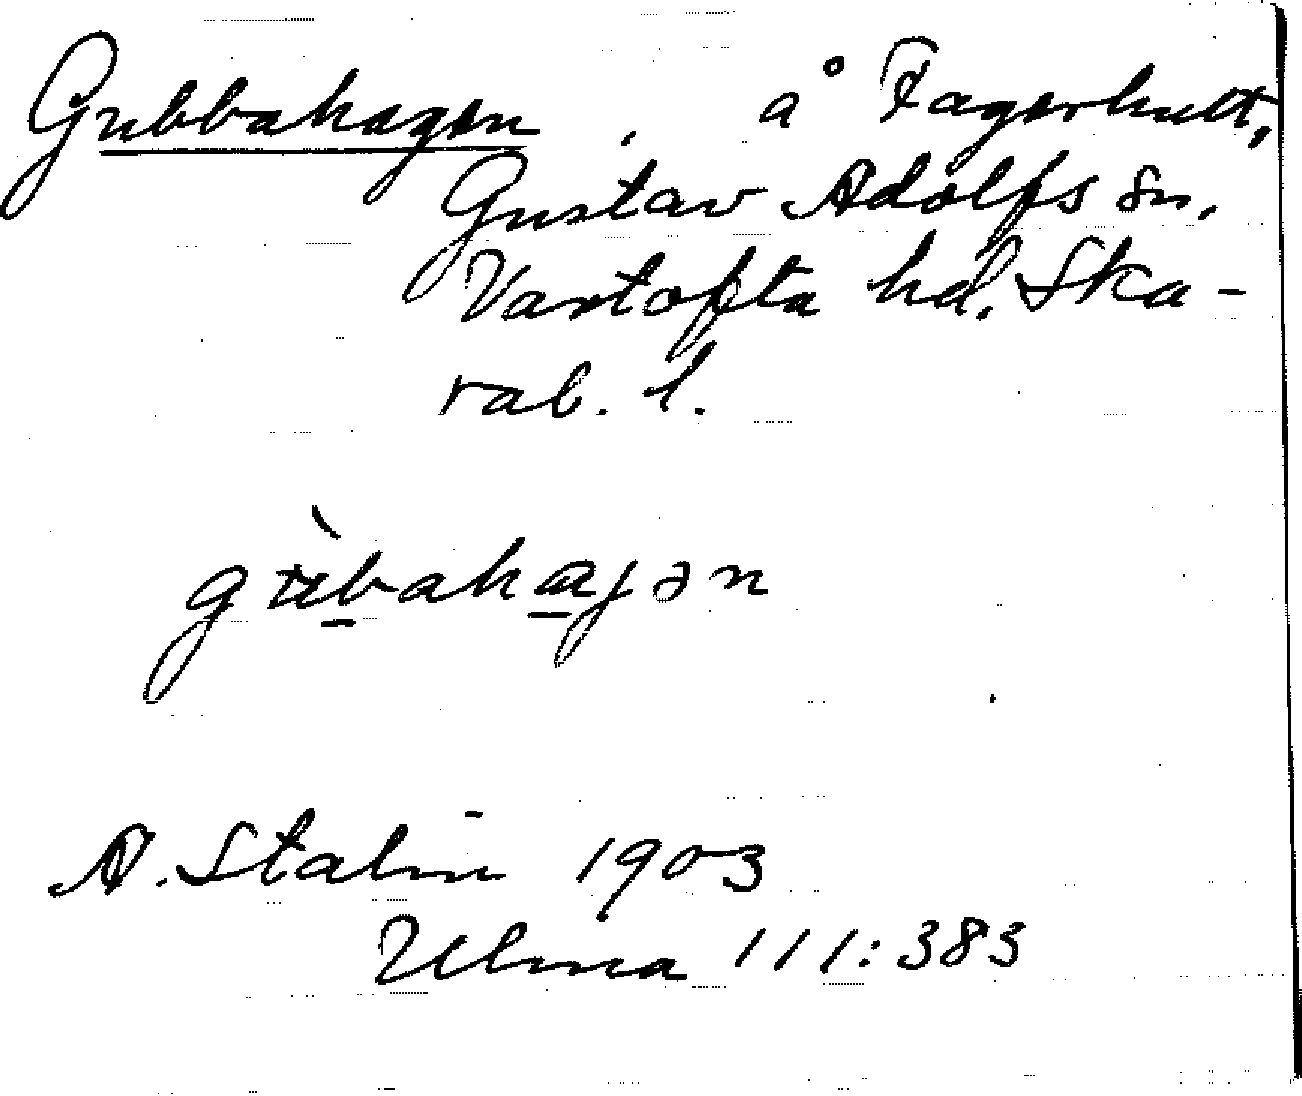 Gubbahagen, å Fagerhult,
Gustav Adolfs sn,
Vartofta hd. Ska-
rab. l.
gu̇bahaɡən
A. Stalin 1903
Ulma 111:383